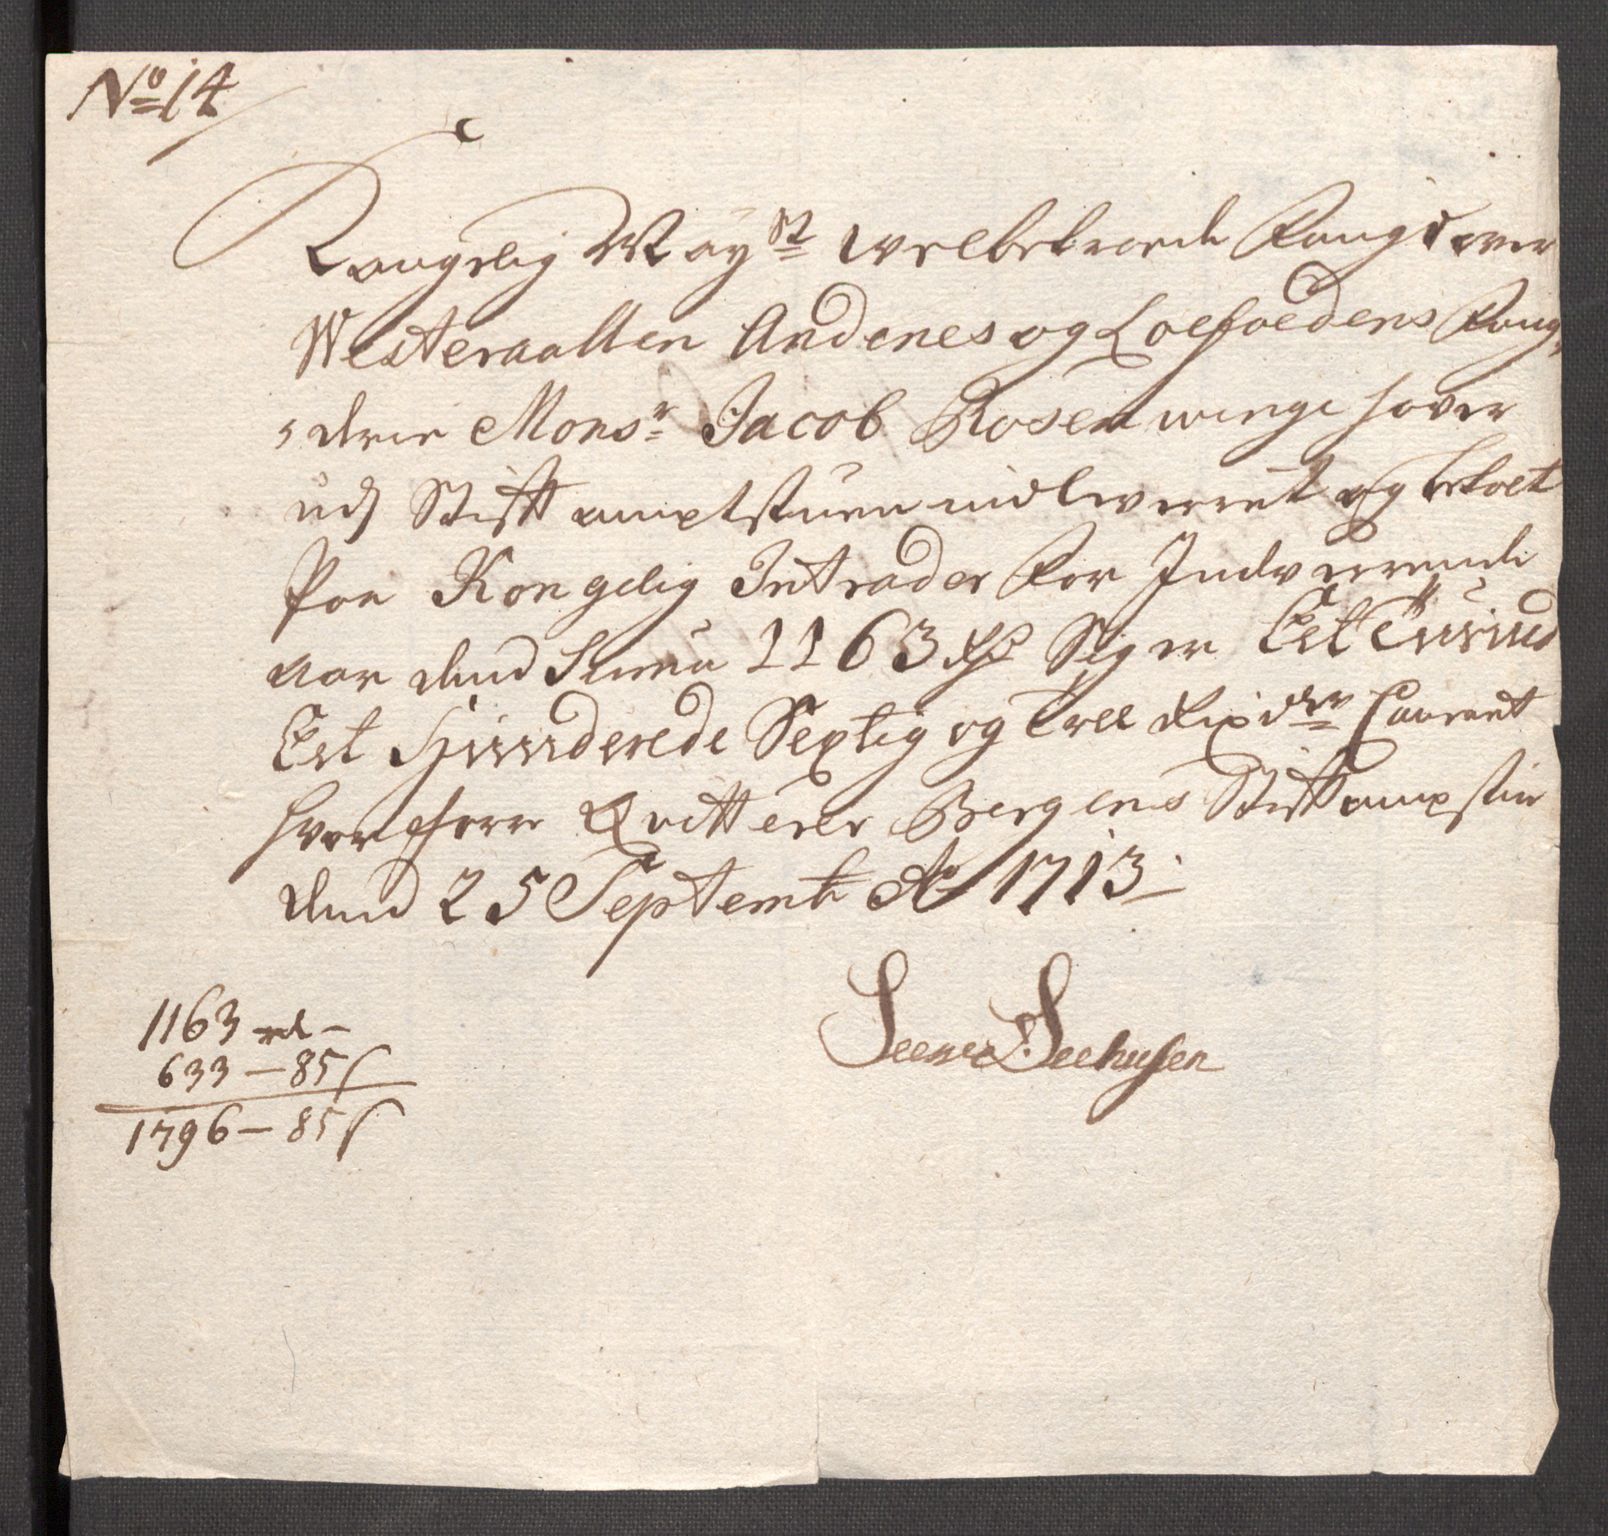 No 14
Kongelig Mayst welbetroede Fougd over
Westeraallen Andenes og Loefoedens Foug,
derie Monsr Jacob Rosenwinge haver
udj Stifft amptstuen indlewerret og betalt
Paa Kongelig Intrader for Indverrende
aar dend Suma 1163 Rdr Siger Eet Tuusind
Eet Hunderede Sextig og Tree Rixdlr Courant
hvor forre Qvitterer Bergens Stifftampstue
dend 25 Septemb Ao 1713.
Seehusen
1163 rd –
633 – 85 s
1796 – 85 s